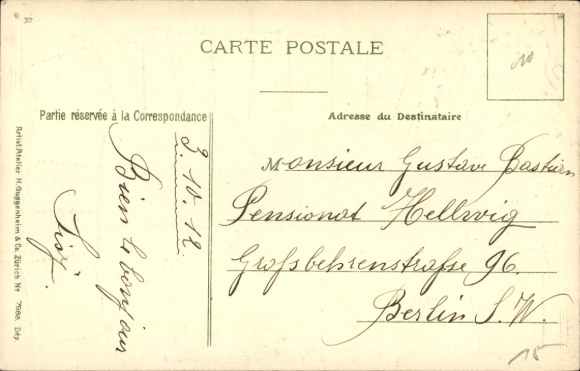 32
CARTE POSTALE
10
Partie réservée à la Correspondance
Adresse du Destinataire
3.10.12.
Bien le bonjour
Monsieur Gustave Bastian
Pensionat Hellwig
Grofsbehrenstrafse 96.
Berlin S.W.
15
Artist. Atelier H. Guggenheim & Co. Zürich No 7988. Dép.